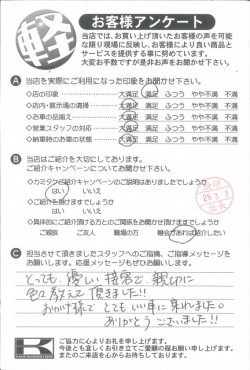 軽
お客様アンケート
当店では、お買い上げ頂いたお客様の声を可能
な限り現場に反映し、お客様により良い商品と
サービスを提供する事に努めています。
大変お手数ですが是非お声をお聞かせ下さい。
A 当店を実際にご利用になった印象をお聞かせ下さい。
◇店の印象 大満足 満足 ふつう やや不満 不満
◇店内・展示場の清掃 大満足 満足 ふつう やや不満 不満
◇お車の品揃え 大満足 満足 ふつう やや不満 不満
◇営業スタッフの対応 大満足 満足 ふつう やや不満 不満
◇納車時のお車の状態 大満足 満足 ふつう やや不満 不満
B 当店はご紹介を大切にしております。
ご紹介キャンペーンについてお聞かせ下さい。
◇カミタケご紹介キャンペーンのご説明はありましたでしょうか
はい いいえ
◇ご紹介を頂けますでしょうか
はい いいえ
◇具体的にご紹介頂ける方とのご関係をお聞かせ頂けますでしょうか
ご親族 ご友人 職場の方 機会があれば紹介したい
C 担当させて頂きましたスタッフへのご指摘、ご指導メッセージを
お願いします。応援メッセージもぜひお願いします。
とっても優しい接客で親切に
色々教えて頂きました!!
おかげ様でとてもいい車に乗れました。
ありがとうございました!!
K
ご協力に心よりお礼を申し上げます。
今後とも宜しくお引き立てご愛顧の程お願い申し上げます。
またのご来店を心からお待ちしております。